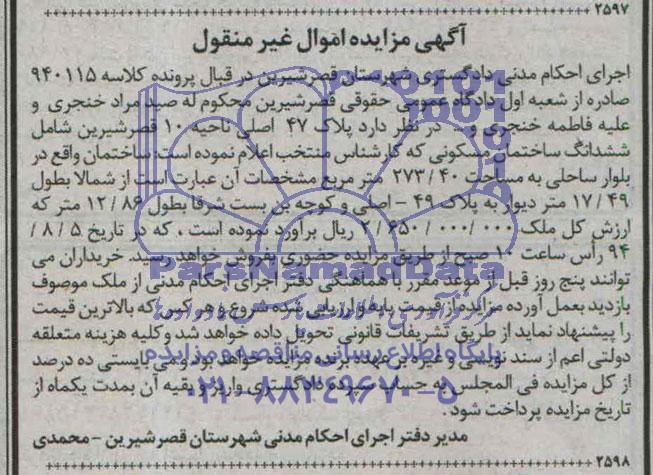 ۲۵۹۷
آگهی مزایده اموال غیر منقول
اجرای احکام مدنی دادگستری شهرستان قصرشیرین در قبال پرونده کلاسه ۹۴۰۱۱۵
صادره از شعبه اول دادگاه عمومی حقوقی قصرشیرین محکوم له صید مراد خنجری و
علیه فاطمه خنجری و ... در نظر دارد پلاک ۴۷ اصلی ناحیه ۱۰ قصرشیرین شامل
ششدانگ ساختمان مسکونی که کارشناس منتخب اعلام نموده است: ساختمان واقع در
بلوار ساحلی به مساحت ۲۷۳/۴۰ متر مربع مشخصات آن عبارت است از شمالا بطول
۱۷/۴۹ متر دیوار به پلاک ۴۹ - اصلی و کوچه بن بست شرقا بطول ۱۲/۸۶ متر که
ارزش کل ملک ۲/۶۵۰/۰۰۰/۰۰۰ ریال برآورد نموده است ، که در تاریخ ۸/۵/
۹۴ رأس ساعت ۱۰ صبح از طریق مزایده حضوری بفروش خواهد رسید. خریداران می
توانند پنج روز قبل از موعد مقرر با هماهنگی دفتر اجرای احکام مدنی از ملک موصوف
بازدید بعمل آورده مزایده از قیمت پایه ارزیابی شده شروع و هر کس که بالاترین قیمت
را پیشنهاد نماید از طریق تشریفات قانونی تحویل داده خواهد شد و کلیه هزینه متعلقه
دولتی اعم از سند نویسی و غیره بر عهده برنده مزایده خواهد بود و می بایستی ده درصد
از کل مزایده فی المجلس به حساب سپرده دادگستری واریز و بقیه آن بمدت یکماه از
تاریخ مزایده پرداخت شود .
مدیر دفتر اجرای احکام مدنی شهرستان قصرشیرین - محمدی
۲۵۹۸
ParsNamadData
پایگاه اطلاع رسانی مناقصه و مزایده
۰۲۱-۸۸۳۴۹۶۷۰-۵